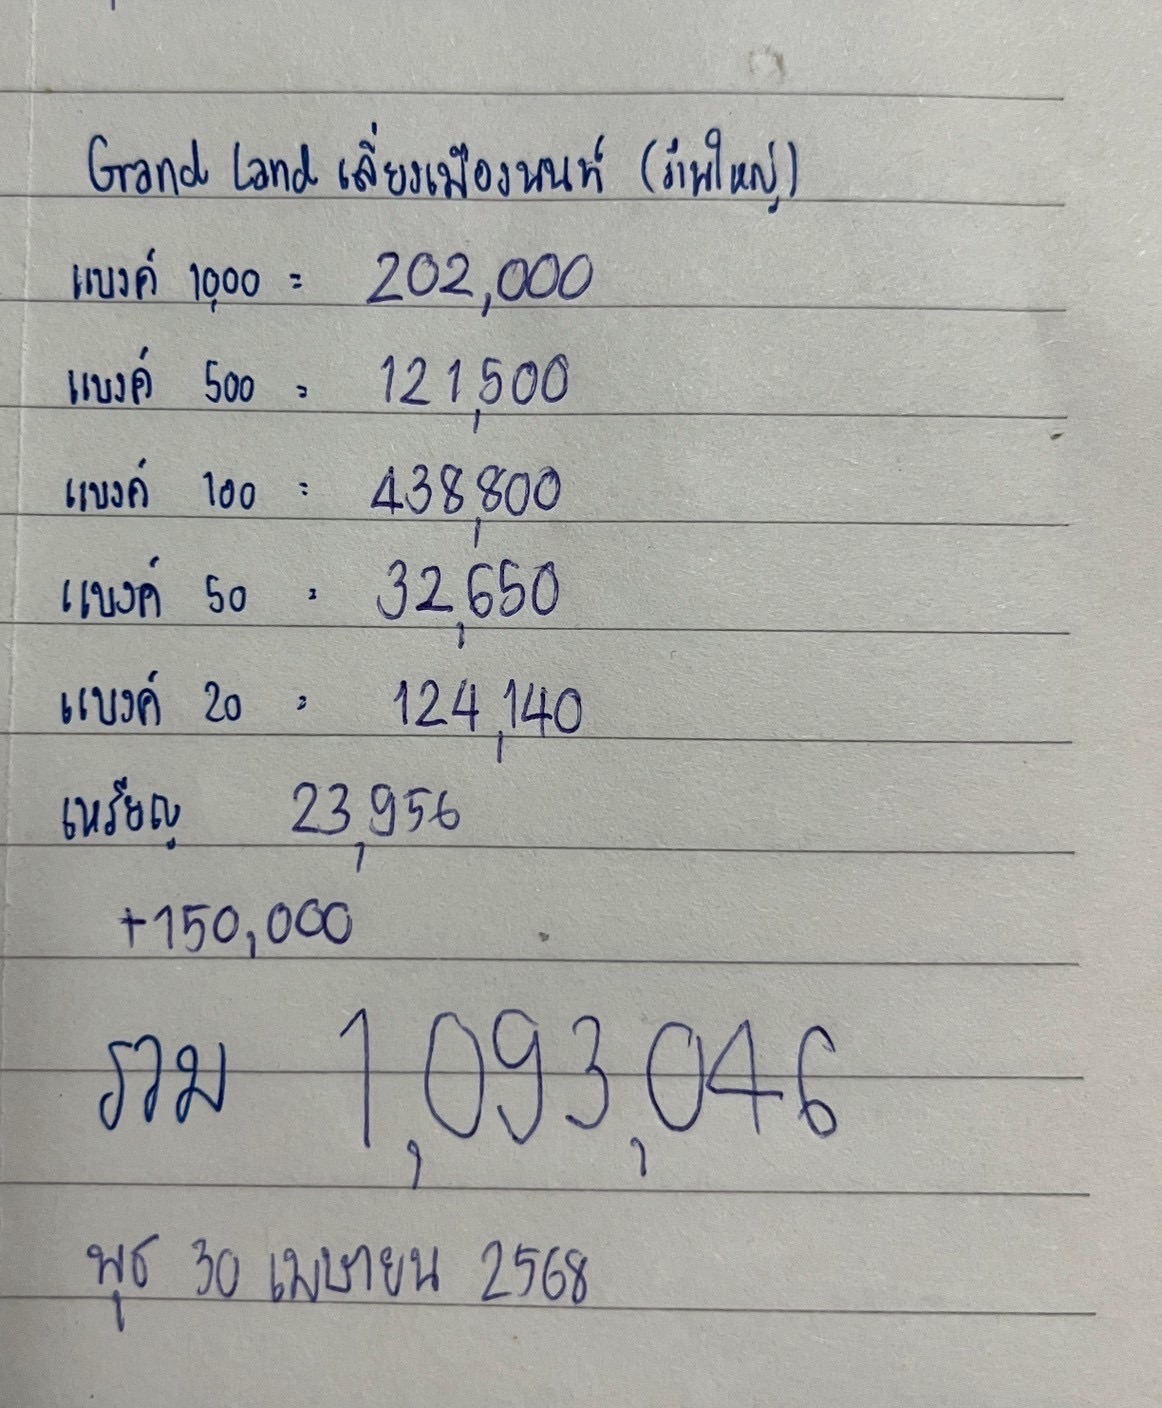 Grand Land เลี่ยงเมืองนนท์ (ภาพใหญ่)
แบงค์ 1,000 = 202,000
แบงค์ 500 = 121,500
แบงค์ 100 = 438,800
แบงค์ 50 = 32,650
แบงค์ 20 = 124,140
เหรียญ 23,956
+150,000
รวม 1,093,046
พุธ 30 เมษายน 2568